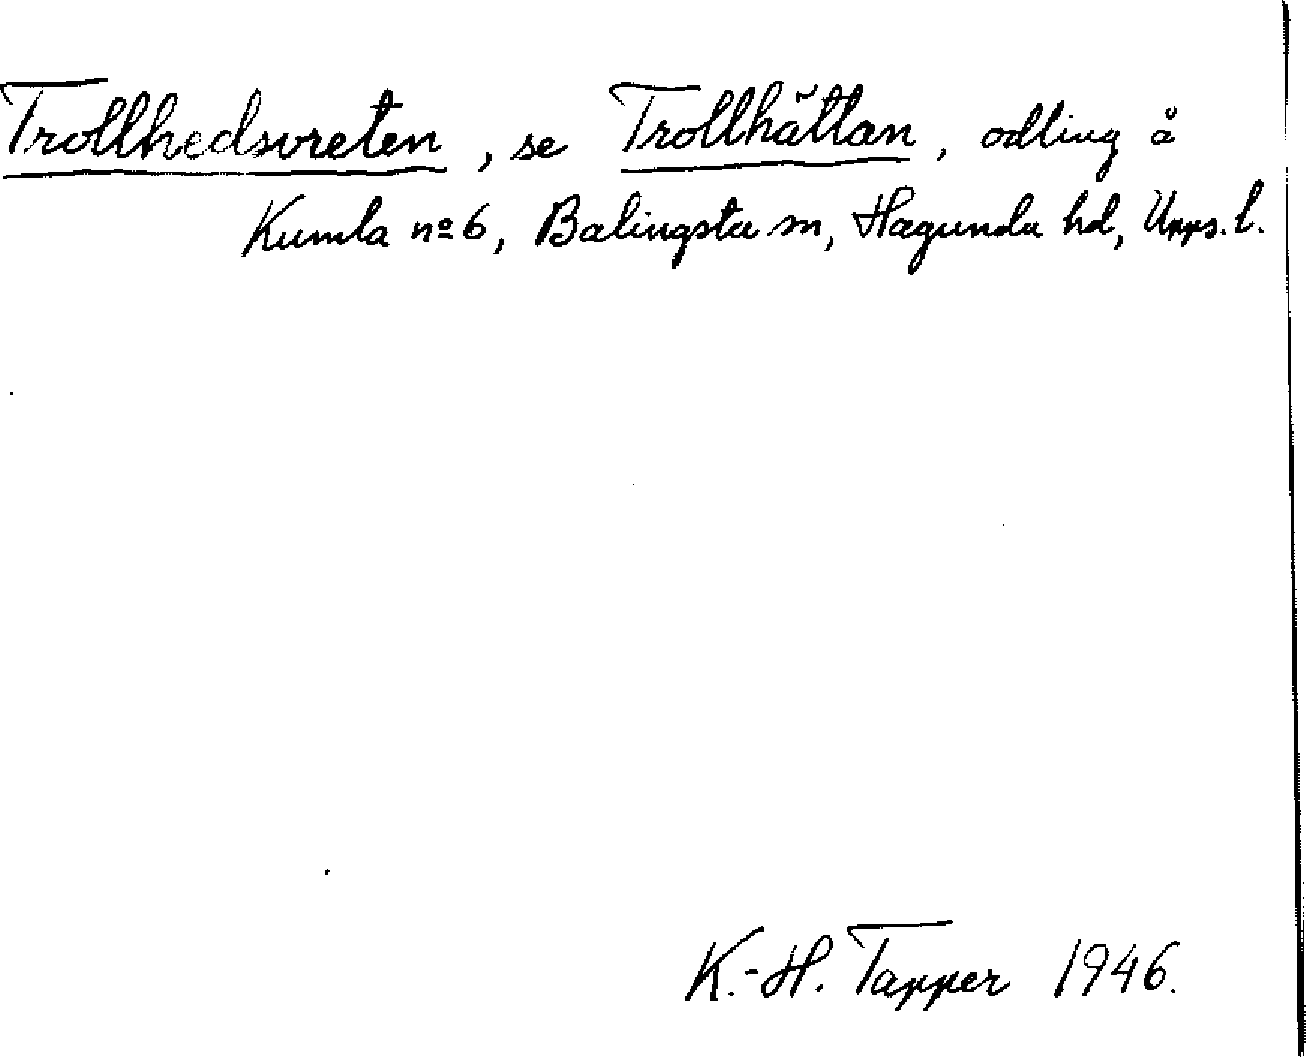 Trollhedsvreten, se Trollhättan, odling å
Kumla nº 6, Balingsta sn, Hagunda hd, Upps. l.
K.-H. Tapper 1946.